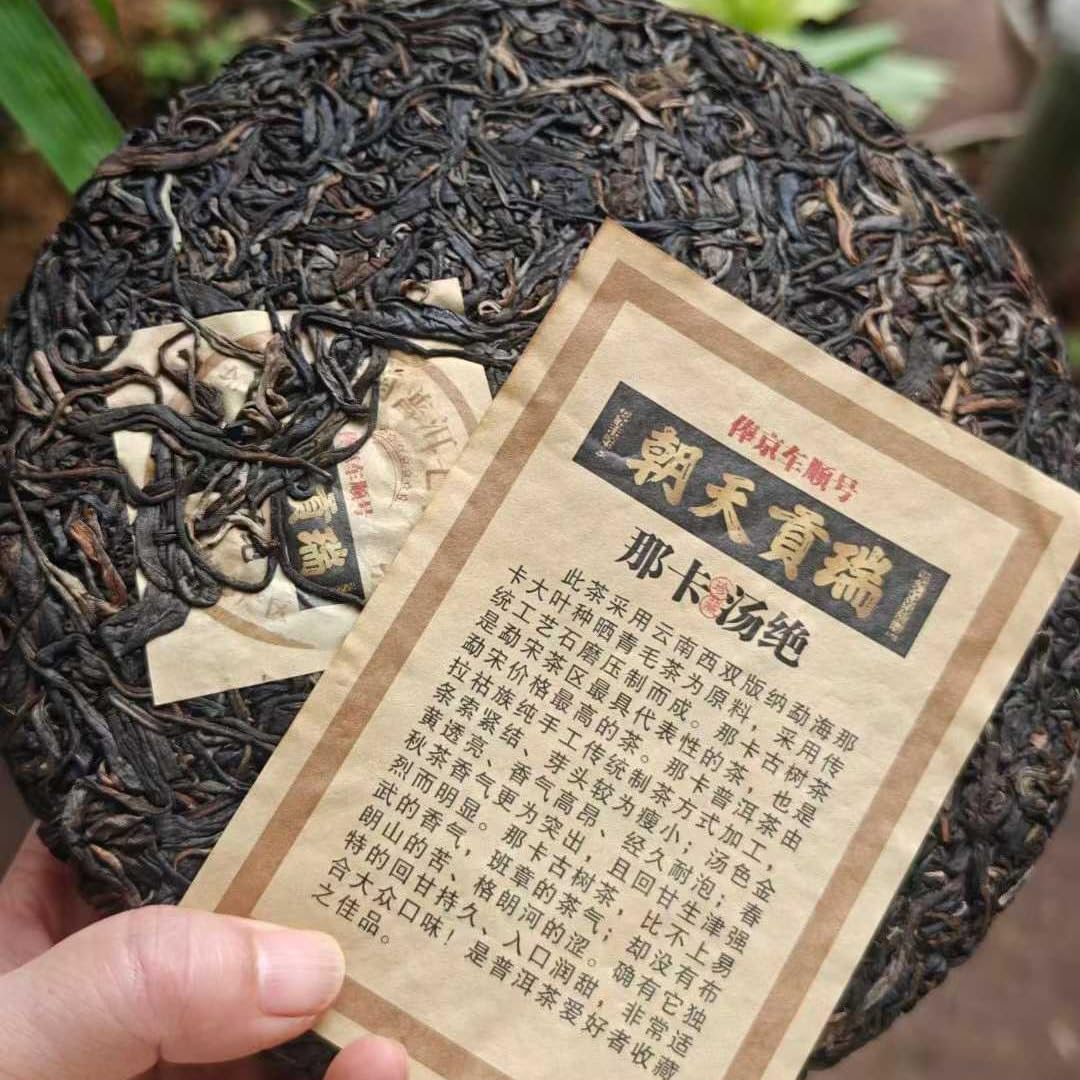 俸京车顺号
朝天貢瑞
那卡珍藏汤绝
此茶采用云南西双版纳勐海那
卡大叶种晒青毛茶为原料，采用传
统工艺石磨压制而成。那卡古树茶
是勐宋茶区最具代表性的茶，也是
勐宋价格最高的茶。那卡普洱茶由
拉祜族纯手工传统制茶方式加工，
条索紧结、芽头较为瘦小；汤色金
黄透亮、香气高昂、经久耐泡；春
秋茶香气更为突出，且回甘生津强
烈而明显。那卡古树茶，比不上易
武的香气，班章的茶气；却没有布
朗山的苦、格朗河的涩。确有它独
特的回甘持久、入口润甜，非常适
合大众口味！是普洱茶爱好者收藏
之佳品。
普洱
车顺号
貢瑞